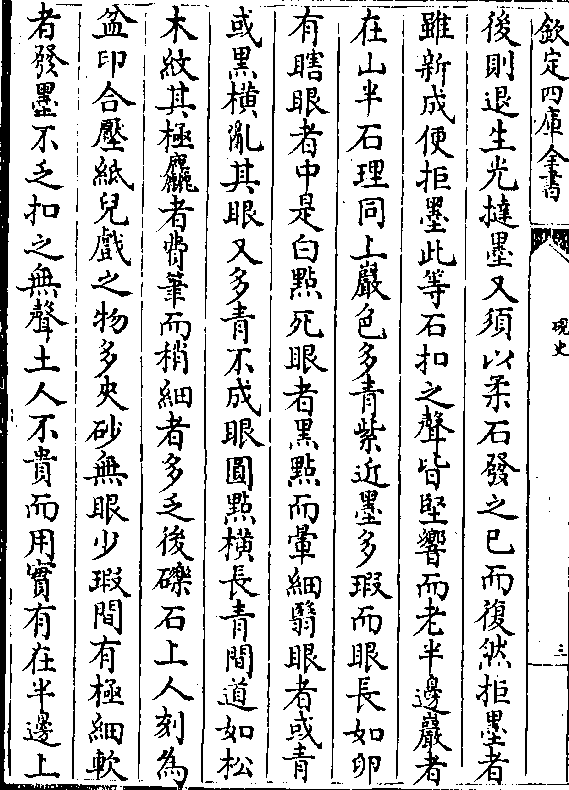 欽定四庫全書
硯史
三
後則退生光撻墨又須以柔石發之已而復然拒墨者
雖新成便拒墨此等石扣之聲皆堅響而老半邊巖者
在山半石理同上巖色多青紫近墨多瑕而眼長如卵
有瞎眼者中是白點死眼者黑點而暈細翳眼者或青
或黑橫亂其眼又多青不成眼圓點橫長青間道如松
木紋其極麤者費筆而稍細者多乏後礫石上人刻為
盆印合壓紙兒戲之物多夾砂無眼少瑕間有極細軟
者發墨不乏扣之無聲土人不貴而用實有在半邊上